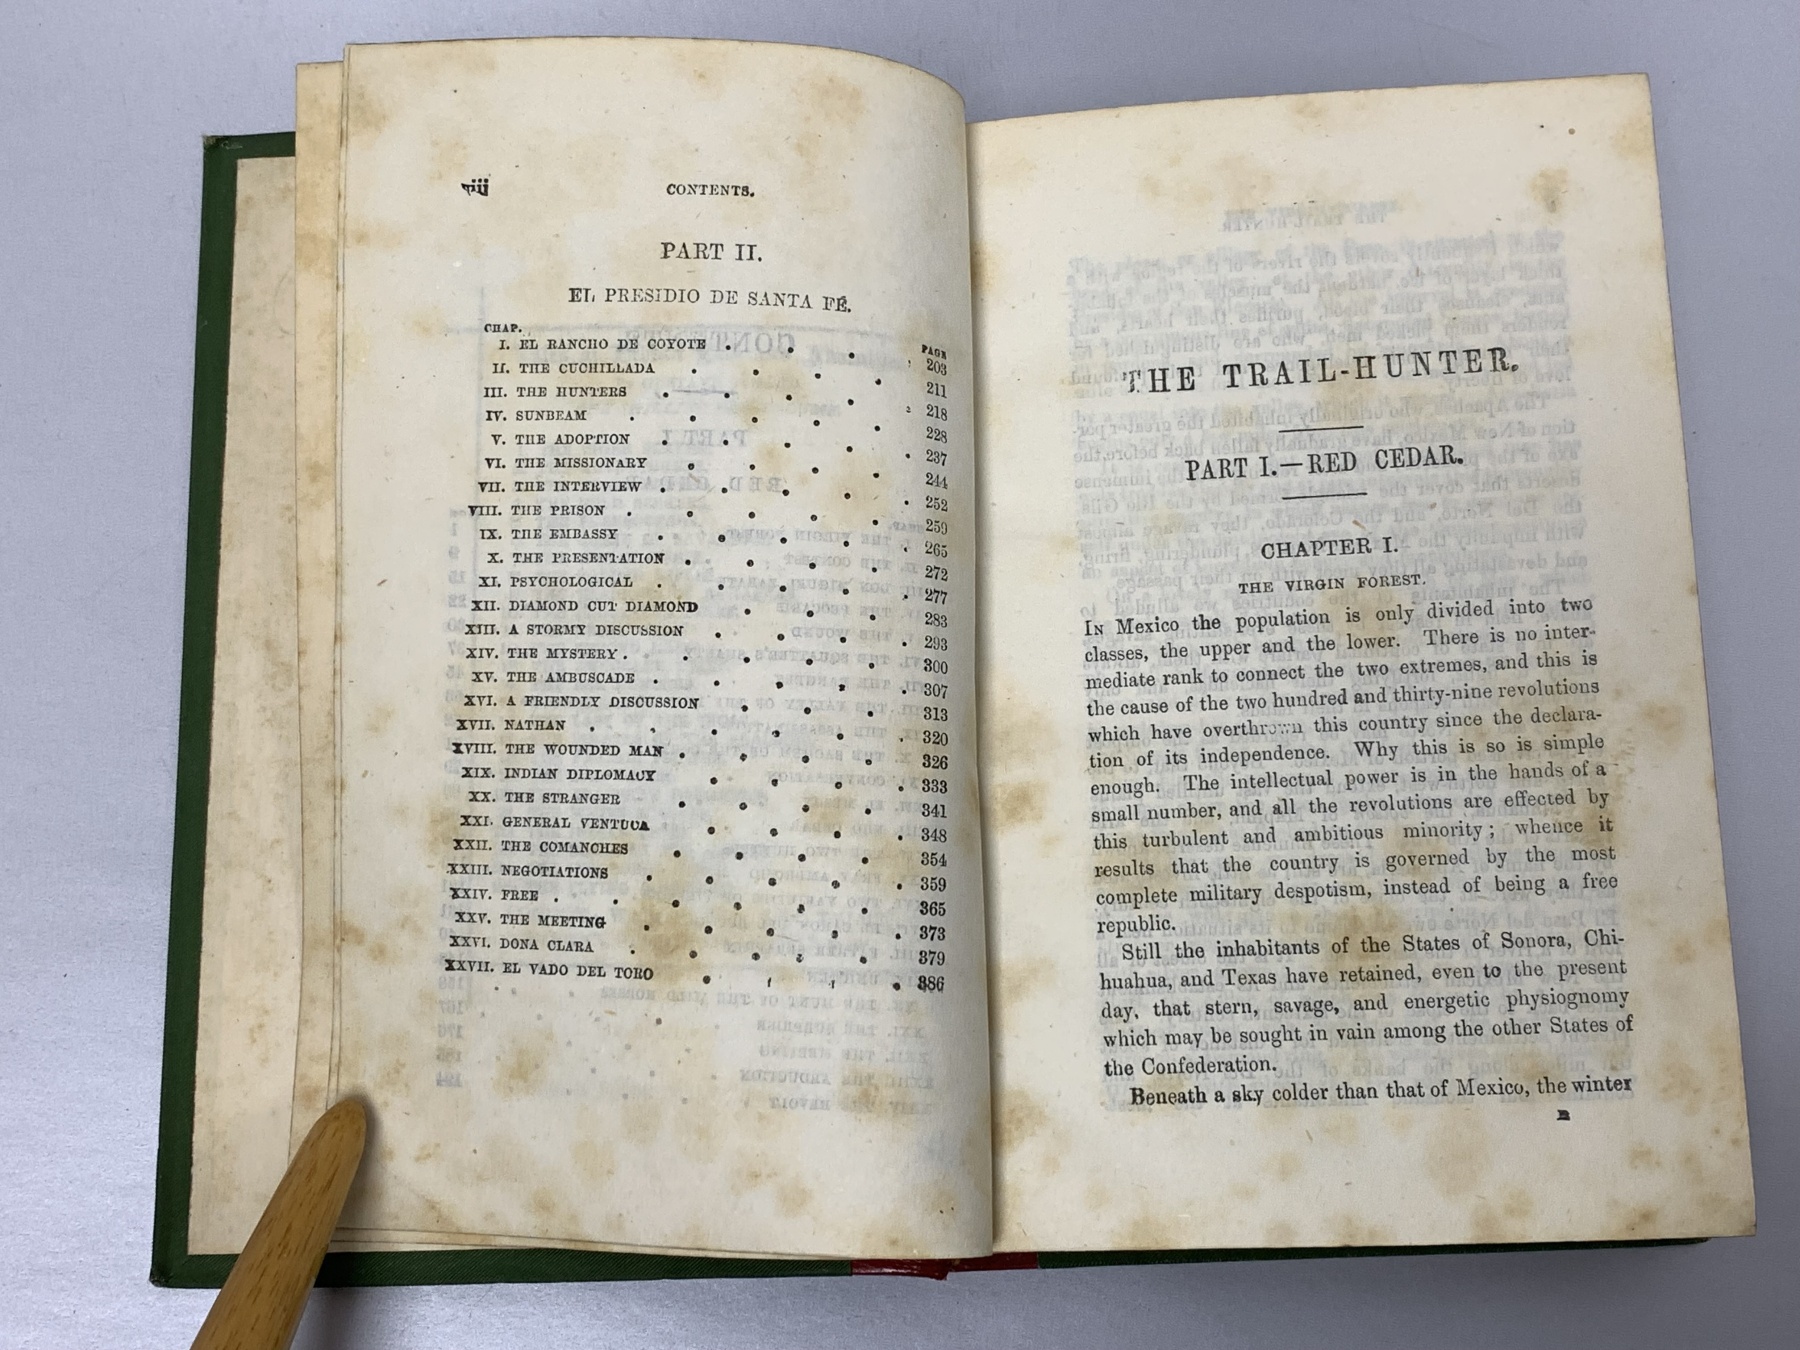 viij
CONTENTS.
PART II.
EL PRESIDIO DE SANTA FÉ.
CHAP. PAGE
I. EL RANCHO DE COYOTE . . . . 203
II. THE CUCHILLADA . . . . 211
III. THE HUNTERS . . . . 218
IV. SUNBEAM . . . . 228
V. THE ADOPTION . . . . 237
VI. THE MISSIONARY . . . . 244
VII. THE INTERVIEW . . . . 252
VIII. THE PRISON . . . . 259
IX. THE EMBASSY . . . . 265
X. THE PRESENTATION . . . . 272
XI. PSYCHOLOGICAL . . . . 277
XII. DIAMOND CUT DIAMOND . . . 283
XIII. A STORMY DISCUSSION . . . 293
XIV. THE MYSTERY . . . . . 300
XV. THE AMBUSCADE . . . . 307
XVI. A FRIENDLY DISCUSSION . . . 313
XVII. NATHAN . . . . . 320
XVIII. THE WOUNDED MAN . . . . 326
XIX. INDIAN DIPLOMACY . . . . 333
XX. THE STRANGER . . . . 341
XXI. GENERAL VENTUCA . . . 348
XXII. THE COMANCHES . . . . 354
XXIII. NEGOTIATIONS . . . . 359
XXIV. FREE . . . . . 365
XXV. THE MEETING . . . . 373
XXVI. DONA CLARA . . . . 379
XXVII. EL VADO DEL TORO . . . . 386
THE TRAIL-HUNTER.
PART I.—RED CEDAR.
CHAPTER I.
THE VIRGIN FOREST.
IN Mexico the population is only divided into two
classes, the upper and the lower. There is no inter-
mediate rank to connect the two extremes, and this is
the cause of the two hundred and thirty-nine revolutions
which have overthrown this country since the declara-
tion of its independence. Why this is so is simple
enough. The intellectual power is in the hands of a
small number, and all the revolutions are effected by
this turbulent and ambitious minority; whence it
results that the country is governed by the most
complete military despotism, instead of being a free
republic.
Still the inhabitants of the States of Sonora, Chi-
huahua, and Texas have retained, even to the present
day, that stern, savage, and energetic physiognomy
which may be sought in vain among the other States of
the Confederation.
Beneath a sky colder than that of Mexico, the winter
B